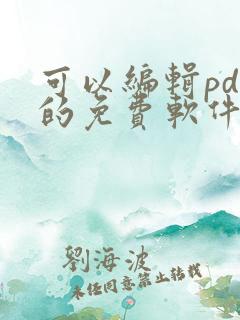 可以編輯pd
的免費軟件
劉海波
未經同意禁止轉載